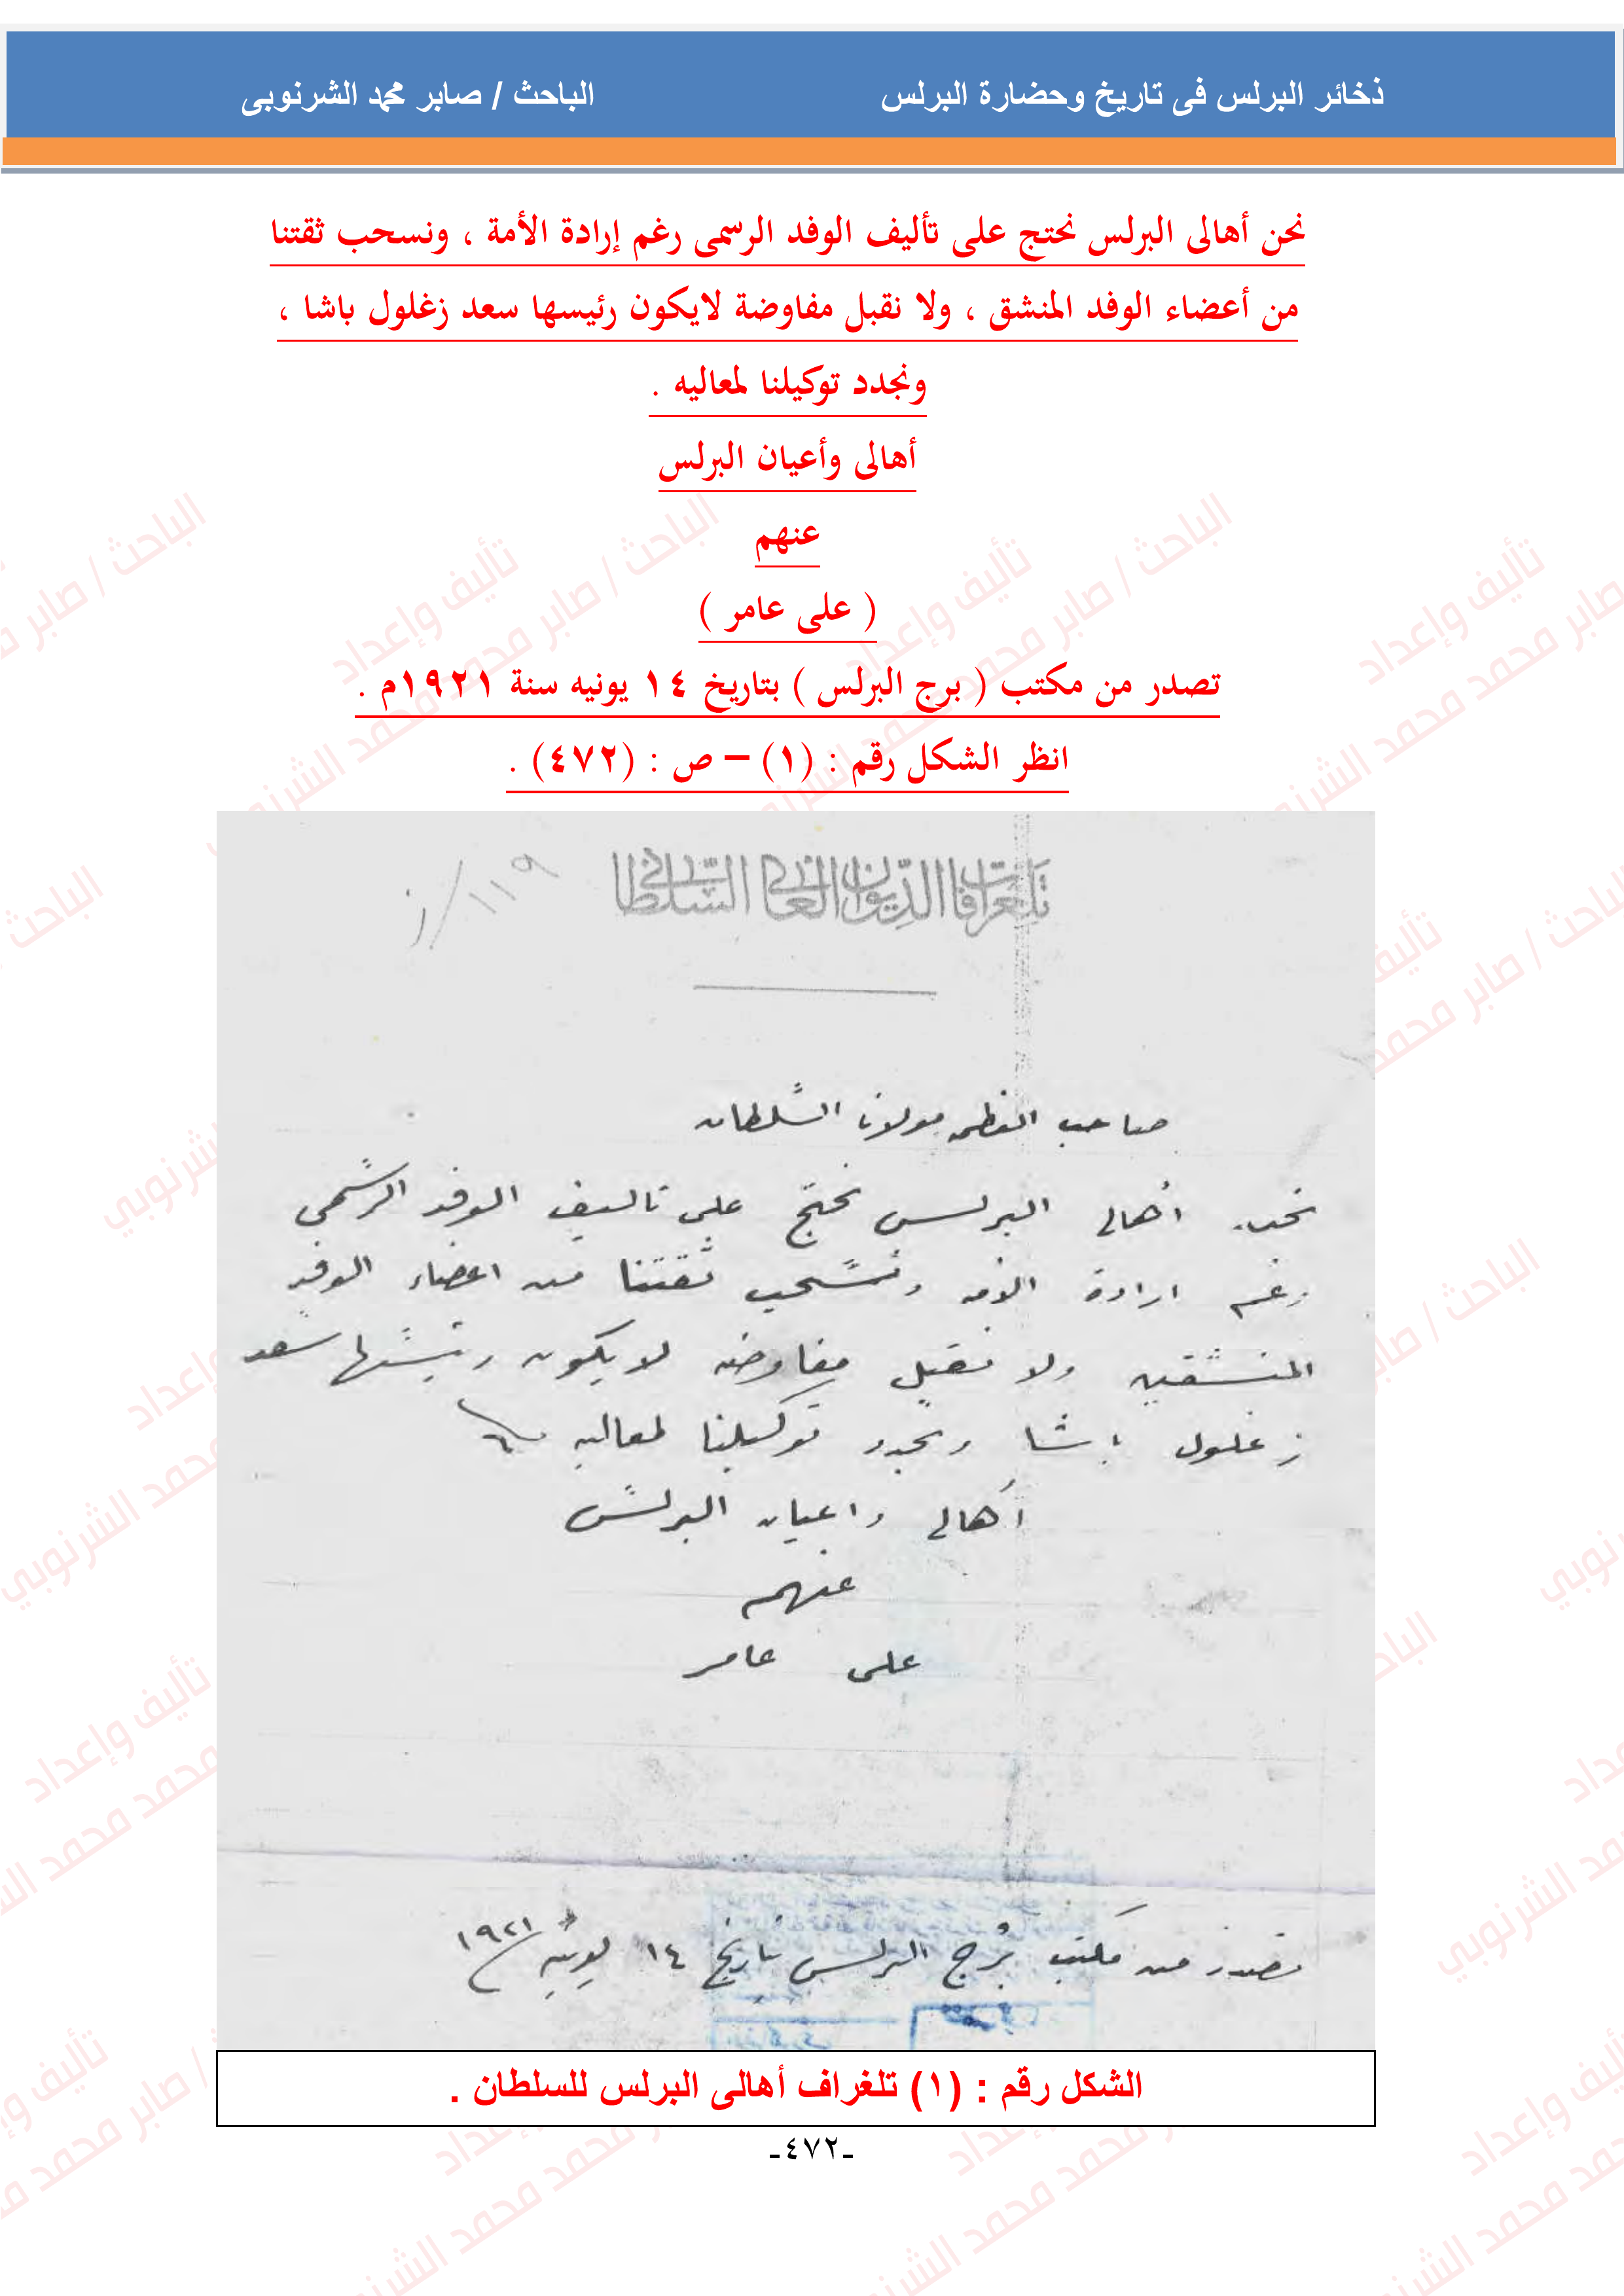 ذخائر البرلس فى تاريخ وحضارة البرلس الباحث / صابر محمد الشرنوبى
نحن أهالى البرلس نحتج على تأليف الوفد الرسمى رغم إرادة الأمة ، ونسحب ثقتنا
من أعضاء الوفد المنشق ، ولا نقبل مفاوضة لايكون رئيسها سعد زغلول باشا ،
ونجدد توكيلنا لمعاليه .
أهالى وأعيان البرلس
عنهم
( على عامر )
تصدر من مكتب ( برج البرلس ) بتاريخ ١٤ يونيه سنة ١٩٢١م .
انظر الشكل رقم : (١) – ص : (٤٧٢) .
تلغرافات الديوان العالى السلطانى ١١٩/ز
صاحب العظمه مولانا السلطان
نحن أهالى البرلس نحتج على تاليف الوفد الرسمي
رغم ارادة الامه ونسحب ثقتنا من اعضاء الوفد
المنشقين ولا نقبل مفاوضه لايكون رئيسها سعد
زغلول باشا ونجدد توكيلنا لمعاليه
أهالى واعيان البرلس
عنهم
على عامر
تصدر من مكتب برج البرلس بتاريخ ١٤ يونيه ١٩٢١
الشكل رقم : (١) تلغراف أهالى البرلس للسلطان .
-٤٧٢-
تأليف وإعداد
الباحث / صابر محمد محمد الشرنوبي